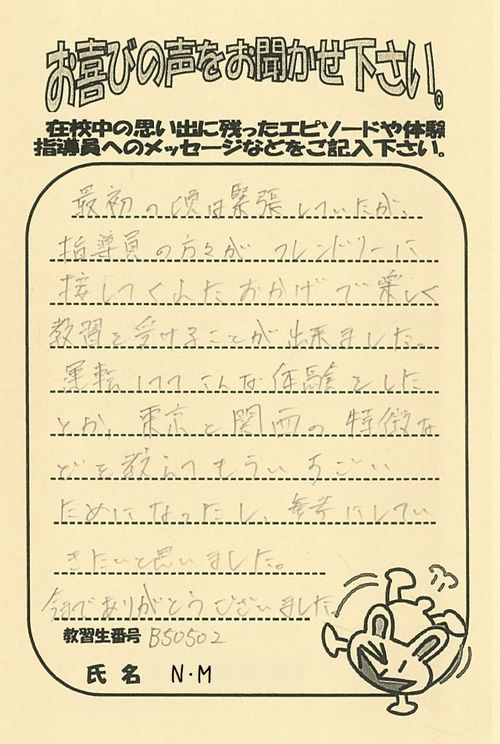 お喜びの声をお聞かせ下さい。
在校中の思い出に残ったエピソードや体験
指導員へのメッセージなどをご記入下さい。
最初の頃は緊張していたが、
指導員の方々が フレンドリーに
接してくれたおかげで楽しく
教習を受けることが出来ました。
運転しててこんな体験をした
とか、東京と関西の特徴な
どを教えてもらいすごい
ためになったし、参考にしてい
きたいと思いました。
今までありがとうございました。
教習生番号 B50502
氏名 N・M